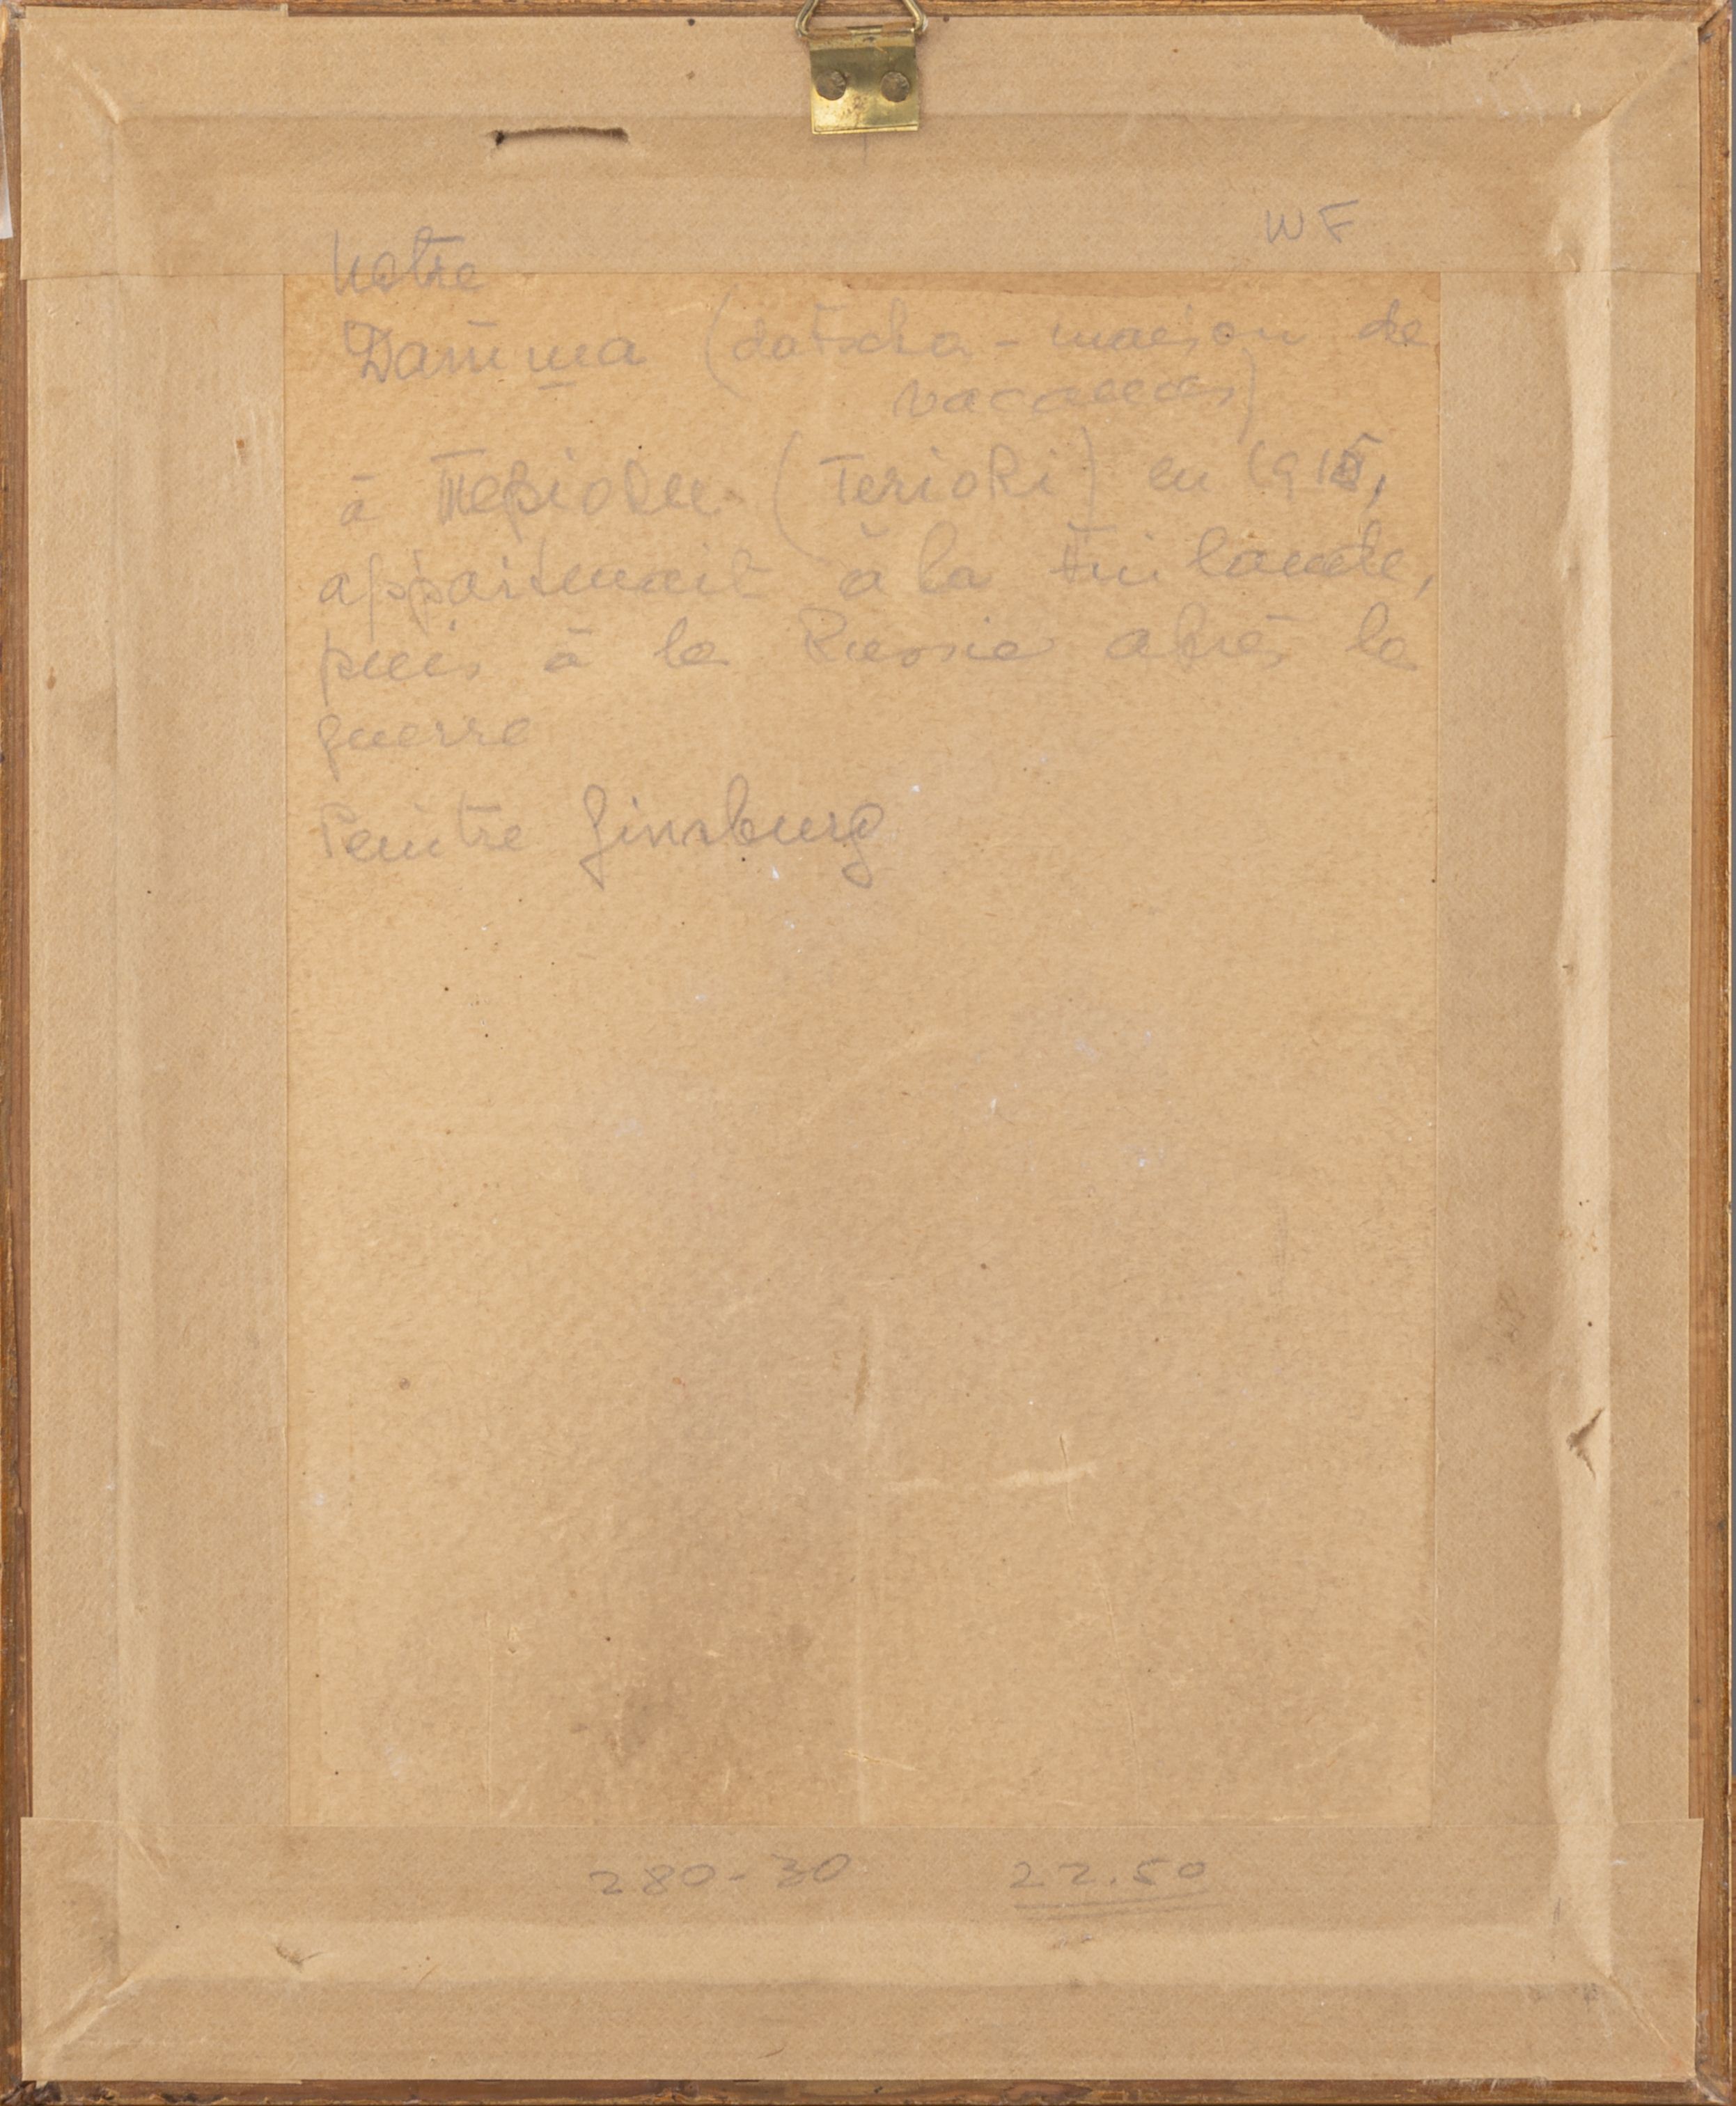 WF
Notre
Датша (datscha - maison de
vacances)
à Терiоки (Terioki) en 1915,
appartenait à la Finlande,
puis à la Russie après la
guerre
Peintre Ginsburg
280-30 22.50